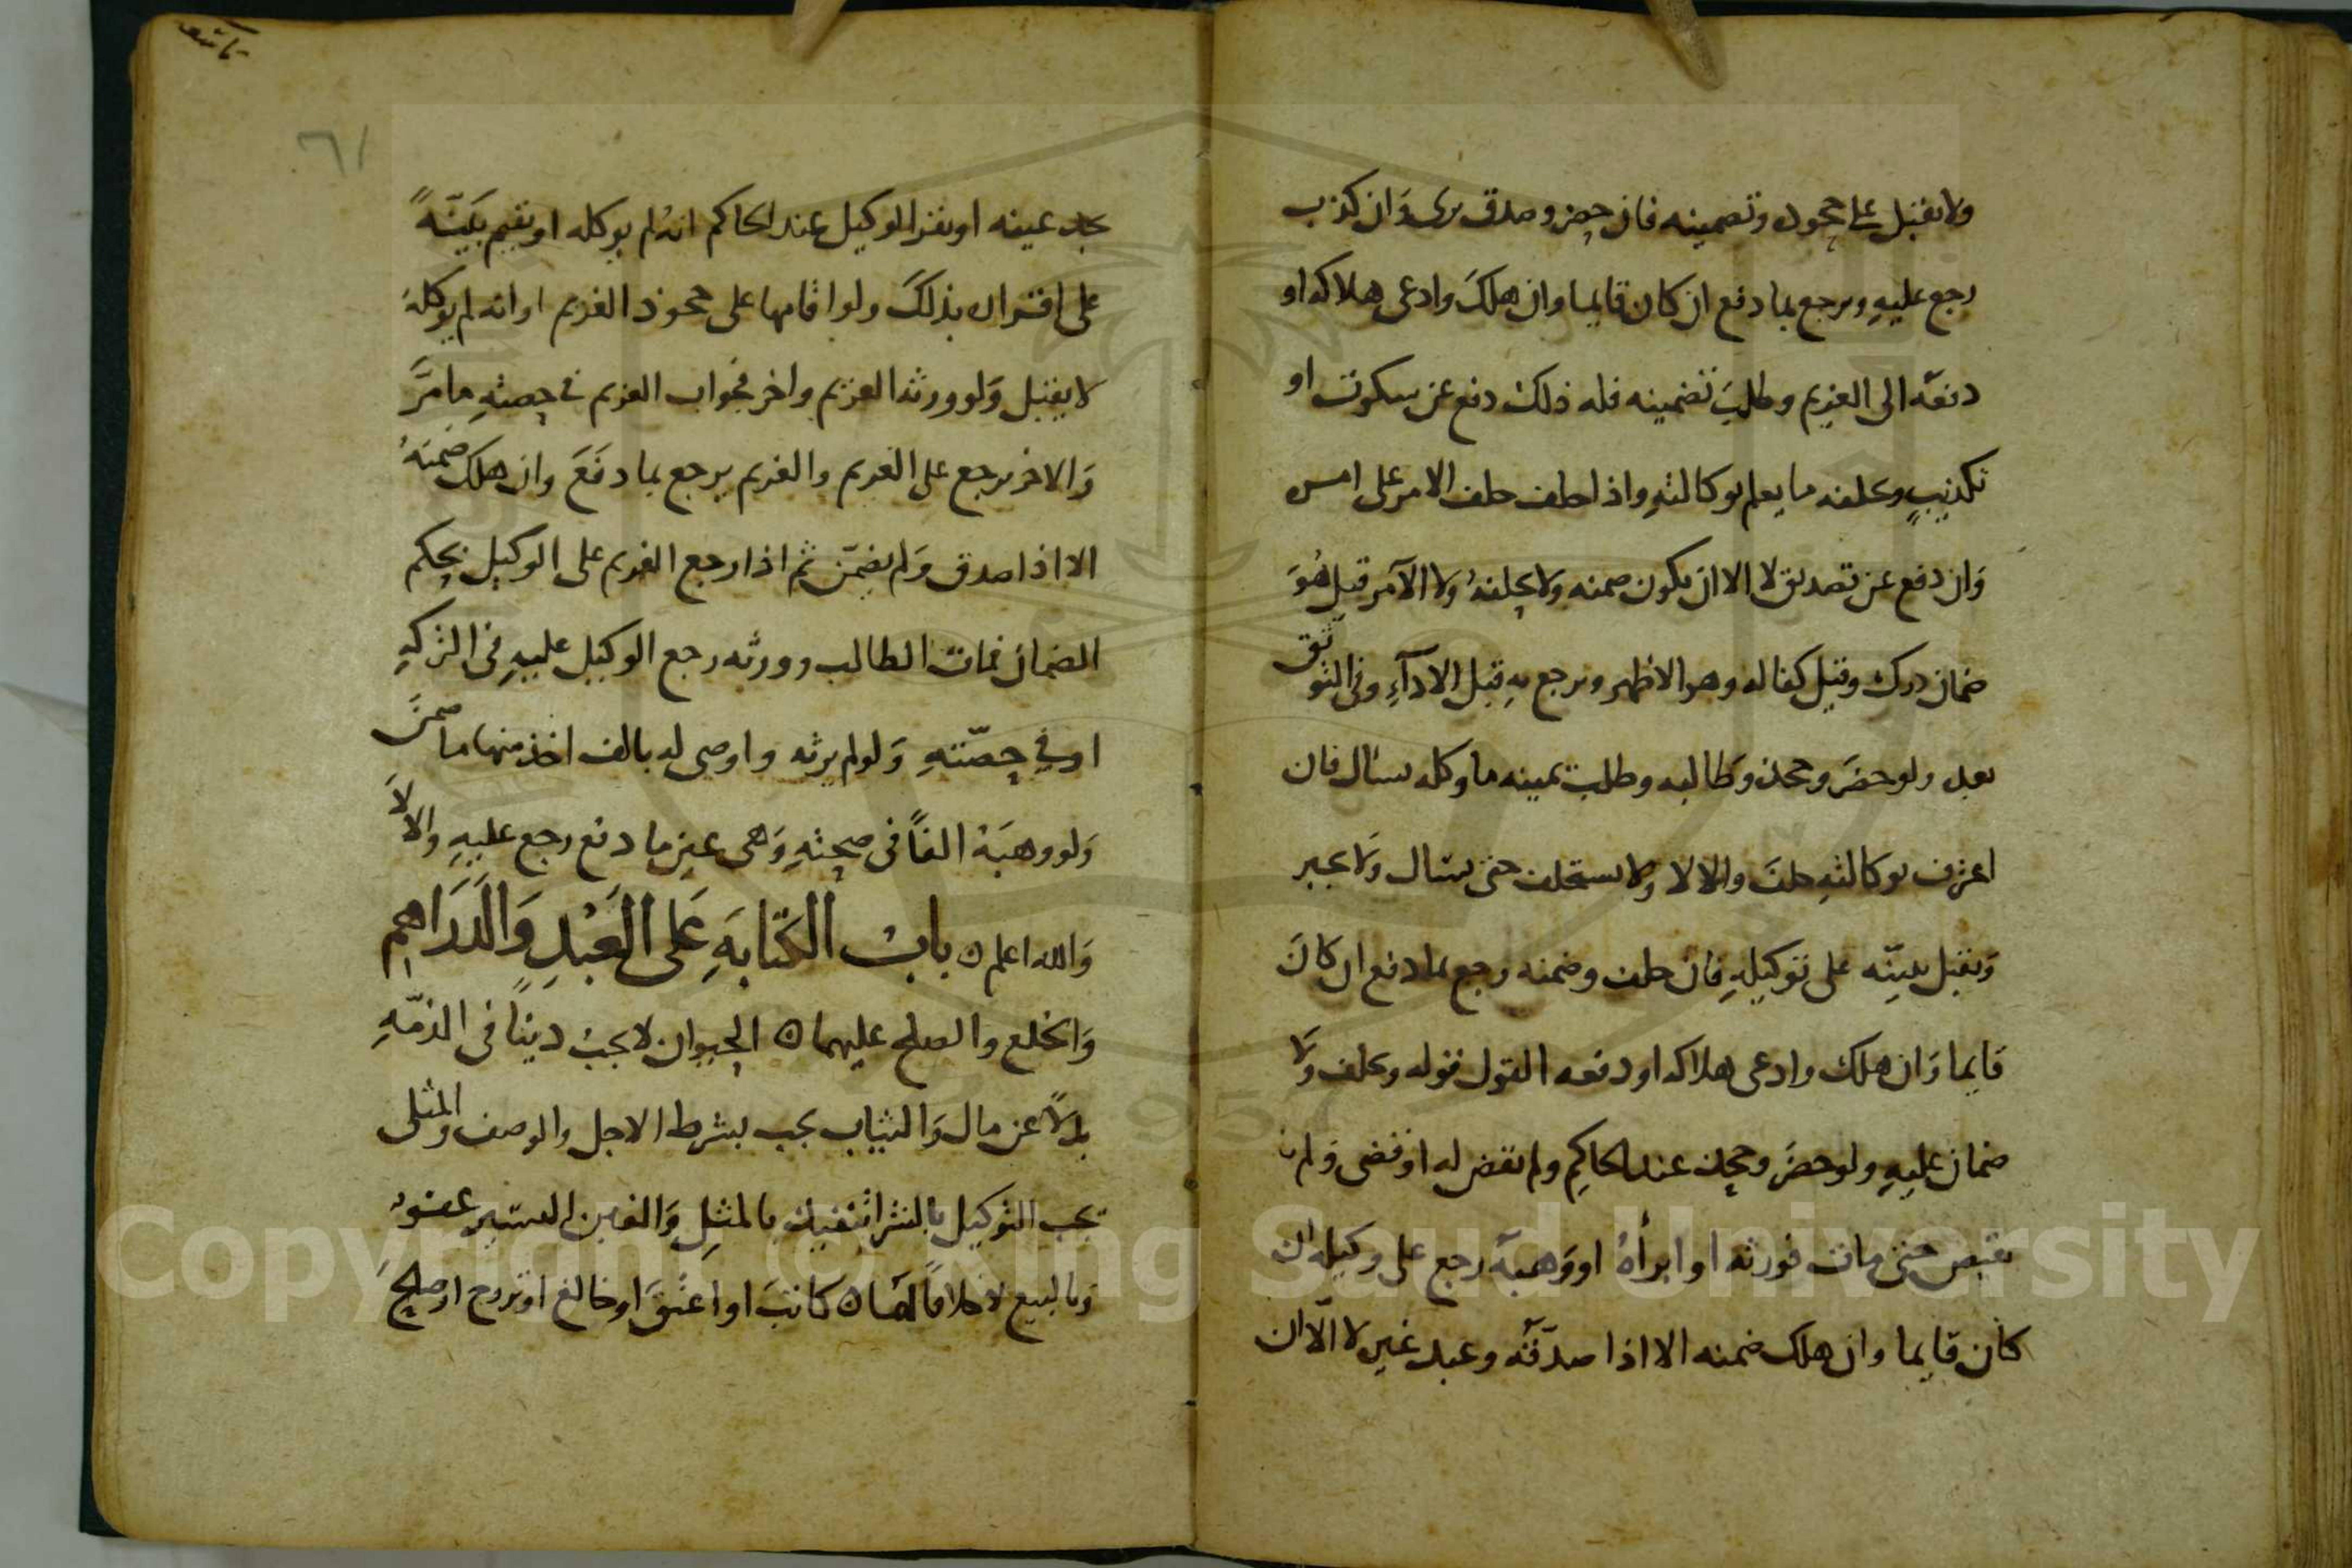 ولا يقبل على جحوده وتضمينه فان حضر وصدق برى وان كذب
رجع عليهِ ويرجع بما دفع ان كان قايما وان هلكَ وادعى هلاكه او
دفعَه الى الغريم وطلبَ تضمينه فله ذلك دفع عن سكوت او
تكذيبٍ ويحلفه ما يعلم بوكالتهِ واذا حلف حلف الامر على امسه
وَان دفع عن تصديق لا الا ان يكون ضمنه ولا يحلفهُ ولا الآمر قيل هُوَ
ضمان درك وقيل كفالة وهو الاظهر ويرجع بهِ قبل الادآءِ وفى التوثق
بعد ولو حضرَ وجحد وَطالبه وطلب يمينه ما وكله يسال فان
اعترف بوكالتهِ حلف والا لا ولا يستحلف حتى يسال ولا يجبر
وَيقبل بينّه على توكيلهِ فان حلف وضمنه رجع بما دفع ان كانَ
قايما وَان هلك وادعى هلاكه او دفعه القول قوله ويحلف ولا
ضمان عليهِ ولو حضرَ وجحد عند الحاكِم ولم يقض له او قضى وَلم
يقبض حتى مات فورثه او ابرأهُ او وَهبهُ رجع على وكيله ان
كان قايما وان هلك ضمنه الا اذا صدّقه وعبد غيره لا الّا ان
٦١
يجد عينه او يقر الوكيل عند الحاكم انهُ لم يوكله او يقيم بَيّنةً
على اقراره بذلكَ ولو اقامها على جحود الغريم او انه لم يوكلهُ
لا يقبل وَلو ورثه الغريم واخر فجواب الغريم فى حصتهِ ما مرَّ
وَالاخر يرجع على الغريم والغريم يرجع بما دفَعَ وان هلك ضمنهُ
الا اذا صدق وَلم يضمّن ثم اذا رجع الغريم على الوكيل بحكم
الضمان فمات الطالب وورثه رجع الوكيل عليهِ فى التركهِ
او فى حصّتهِ وَلو لم يرثه واوصى له بالف اخذ منها ما ضمنَ
وَلو وهبَهُ الفاً فى صحتهِ وَهى عين ما دفع رجع عليهِ والا لاَ
وَالله اعلم ٥ بابُ الكتابَةِ عَلى العَبْدِ وَالدَرَاهِم
وَالخلع والصلح عليهما ٥ الحيوان لا يجبُ ديناً فى الذمّهِ
بدلاً عن مال وَالثياب يجب بشرط الاجل والوصف والمثلى
يجب التوكيل بالشرا يتقيد بالمثلِ وَالغبن اليسير عفوٌ
وَبالبيع لا خلافاً لهَما ٥ كاتبَ او اعتقَ او خالعَ او تزوج او صلحَ